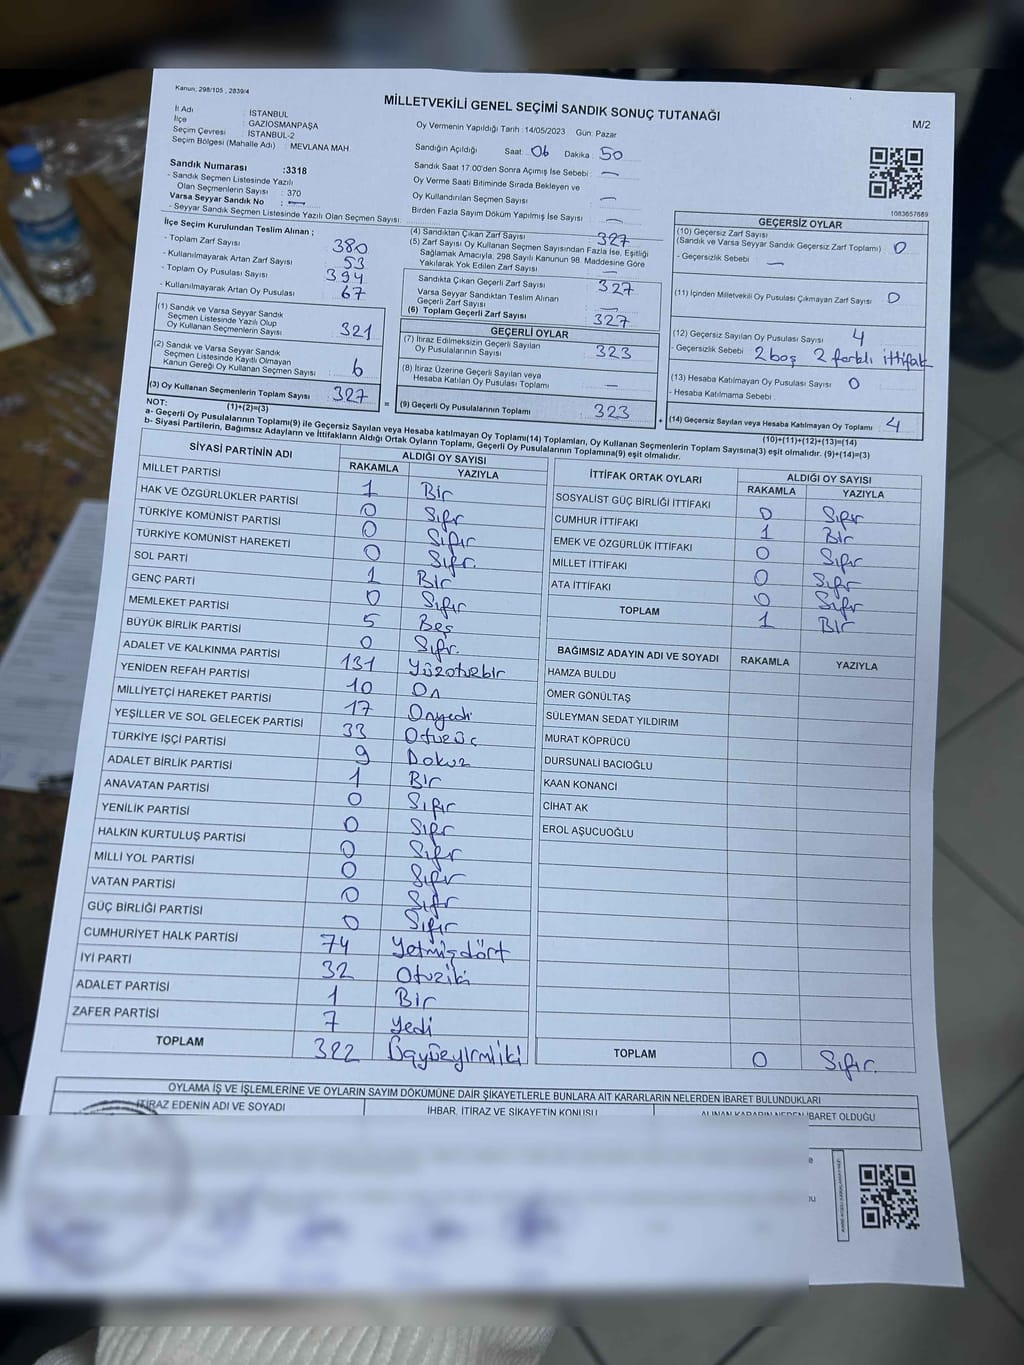 Kanun: 298/105 , 2839/4
MİLLETVEKİLİ GENEL SEÇİMİ SANDIK SONUÇ TUTANAĞI
M/2
İl Adı : İSTANBUL
İlçe : GAZİOSMANPAŞA
Seçim Çevresi : İSTANBUL-2
Seçim Bölgesi (Mahalle Adı) : MEVLANA MAH
Oy Vermenin Yapıldığı Tarih :14/05/2023 Gün: Pazar
Sandığın Açıldığı Saat: 06 Dakika: 50
Sandık Saat 17:00'den Sonra Açımış İse Sebebi : —
Oy Verme Saati Bitiminde Sırada Bekleyen ve
Oy Kullandırılan Seçmen Sayısı : —
Birden Fazla Sayım Döküm Yapılmış İse Sayısı : —
Sandık Numarası :3318
- Sandık Seçmen Listesinde Yazılı
Olan Seçmenlerin Sayısı : 370
Varsa Seyyar Sandık No : —
- Seyyar Sandık Seçmen Listesinde Yazılı Olan Seçmen Sayısı:
1083657889
İlçe Seçim Kurulundan Teslim Alınan ;
- Toplam Zarf Sayısı : 380
- Kullanılmayarak Artan Zarf Sayısı : 53
- Toplam Oy Pusulası Sayısı : 394
- Kullanılmayarak Artan Oy Pusulası : 67
(1) Sandık ve Varsa Seyyar Sandık
Seçmen Listesinde Yazılı Olup
Oy Kullanan Seçmenlerin Sayısı 321
(2) Sandık ve Varsa Seyyar Sandık
Seçmen Listesinde Kayıtlı Olmayan
Kanun Gereği Oy Kullanan Seçmen Sayısı 6
(3) Oy Kullanan Seçmenlerin Toplam Sayısı 327
(1)+(2)=(3)
(4) Sandıktan Çıkan Zarf Sayısı 327
(5) Zarf Sayısı Oy Kullanan Seçmen Sayısından Fazla İse, Eşitliği
Sağlamak Amacıyla; 298 Sayılı Kanunun 98. Maddesine Göre
Yakılarak Yok Edilen Zarf Sayısı : —
Sandıkta Çıkan Geçerli Zarf Sayısı : 327
Varsa Seyyar Sandıktan Teslim Alınan
Geçerli Zarf Sayısı :
(6) Toplam Geçerli Zarf Sayısı : 327
GEÇERLİ OYLAR
(7) İtiraz Edilmeksizin Geçerli Sayılan
Oy Pusulalarının Sayısı : 323
(8) İtiraz Üzerine Geçerli Sayılan veya
Hesaba Katılan Oy Pusulası Toplamı : —
= (9) Geçerli Oy Pusulalarının Toplamı : 323
GEÇERSİZ OYLAR
(10) Geçersiz Zarf Sayısı
(Sandık ve Varsa Seyyar Sandık Geçersiz Zarf Toplamı) : 0
- Geçersizlik Sebebi : —
(11) İçinden Milletvekili Oy Pusulası Çıkmayan Zarf Sayısı : 0
(12) Geçersiz Sayılan Oy Pusulası Sayısı : 4
- Geçersizlik Sebebi : 2 boş 2 farklı ittifak
(13) Hesaba Katılmayan Oy Pusulası Sayısı : 0
- Hesaba Katılmama Sebebi :
+ (14) Geçersiz Sayılan veya Hesaba Katılmayan Oy Toplamı : 4
(10)+(11)+(12)+(13)=(14)
NOT:
a- Geçerli Oy Pusulalarının Toplamı(9) ile Geçersiz Sayılan veya Hesaba katılmayan Oy Toplamı(14) Toplamları, Oy Kullanan Seçmenlerin Toplam Sayısına(3) eşit olmalıdır. (9)+(14)=(3)
b- Siyasi Partilerin, Bağımsız Adayların ve İttifakların Aldığı Ortak Oyların Toplamı, Geçerli Oy Pusulalarının Toplamına(9) eşit olmalıdır.
SİYASİ PARTİNİN ADI ALDIĞI OY SAYISI
RAKAMLA YAZIYLA
MİLLET PARTİSİ 1 Bir
HAK VE ÖZGÜRLÜKLER PARTİSİ 0 Sıfır
TÜRKİYE KOMÜNİST PARTİSİ 0 Sıfır
TÜRKİYE KOMÜNİST HAREKETİ 0 Sıfır.
SOL PARTİ 1 Bir
GENÇ PARTİ 0 Sıfır
MEMLEKET PARTİSİ 5 Beş
BÜYÜK BİRLİK PARTİSİ 0 Sıfır.
ADALET VE KALKINMA PARTİSİ 131 Yüzotuzbir
YENİDEN REFAH PARTİSİ 10 On
MİLLİYETÇİ HAREKET PARTİSİ 17 Onyedi
YEŞİLLER VE SOL GELECEK PARTİSİ 33 Otuzüç
TÜRKİYE İŞÇİ PARTİSİ 9 Dokuz
ADALET BİRLİK PARTİSİ 1 Bir
ANAVATAN PARTİSİ 0 Sıfır
YENİLİK PARTİSİ 0 Sıfır
HALKIN KURTULUŞ PARTİSİ 0 Sıfır
MİLLİ YOL PARTİSİ 0 Sıfır
VATAN PARTİSİ 0 Sıfır
GÜÇ BİRLİĞİ PARTİSİ 0 Sıfır
CUMHURİYET HALK PARTİSİ 74 Yetmişdört
İYİ PARTİ 32 Otuziki
ADALET PARTİSİ 1 Bir
ZAFER PARTİSİ 7 Yedi
TOPLAM 322 Üçyüzyirmiiki
İTTİFAK ORTAK OYLARI ALDIĞI OY SAYISI
RAKAMLA YAZIYLA
SOSYALİST GÜÇ BİRLİĞİ İTTİFAKI 0 Sıfır
CUMHUR İTTİFAKI 1 Bir
EMEK VE ÖZGÜRLÜK İTTİFAKI 0 Sıfır
MİLLET İTTİFAKI 0 Sıfır
ATA İTTİFAKI 0 Sıfır
TOPLAM 1 Bir
BAĞIMSIZ ADAYIN ADI VE SOYADI RAKAMLA YAZIYLA
HAMZA BULDU
ÖMER GÖNÜLTAŞ
SÜLEYMAN SEDAT YILDIRIM
MURAT KÖPRÜCÜ
DURSUNALİ BACIOĞLU
KAAN KONANCİ
CİHAT AK
EROL AŞUCUOĞLU
TOPLAM 0 Sıfır.
OYLAMA İŞ VE İŞLEMLERİNE VE OYLARIN SAYIM DÖKÜMÜNE DAİR ŞİKAYETLERLE BUNLARA AİT KARARLARIN NELERDEN İBARET BULUNDUKLARI
İTİRAZ EDENİN ADI VE SOYADI İHBAR, İTİRAZ VE ŞİKAYETİN KONUSU ALINAN KARARIN NEDEN İBARET OLDUĞU